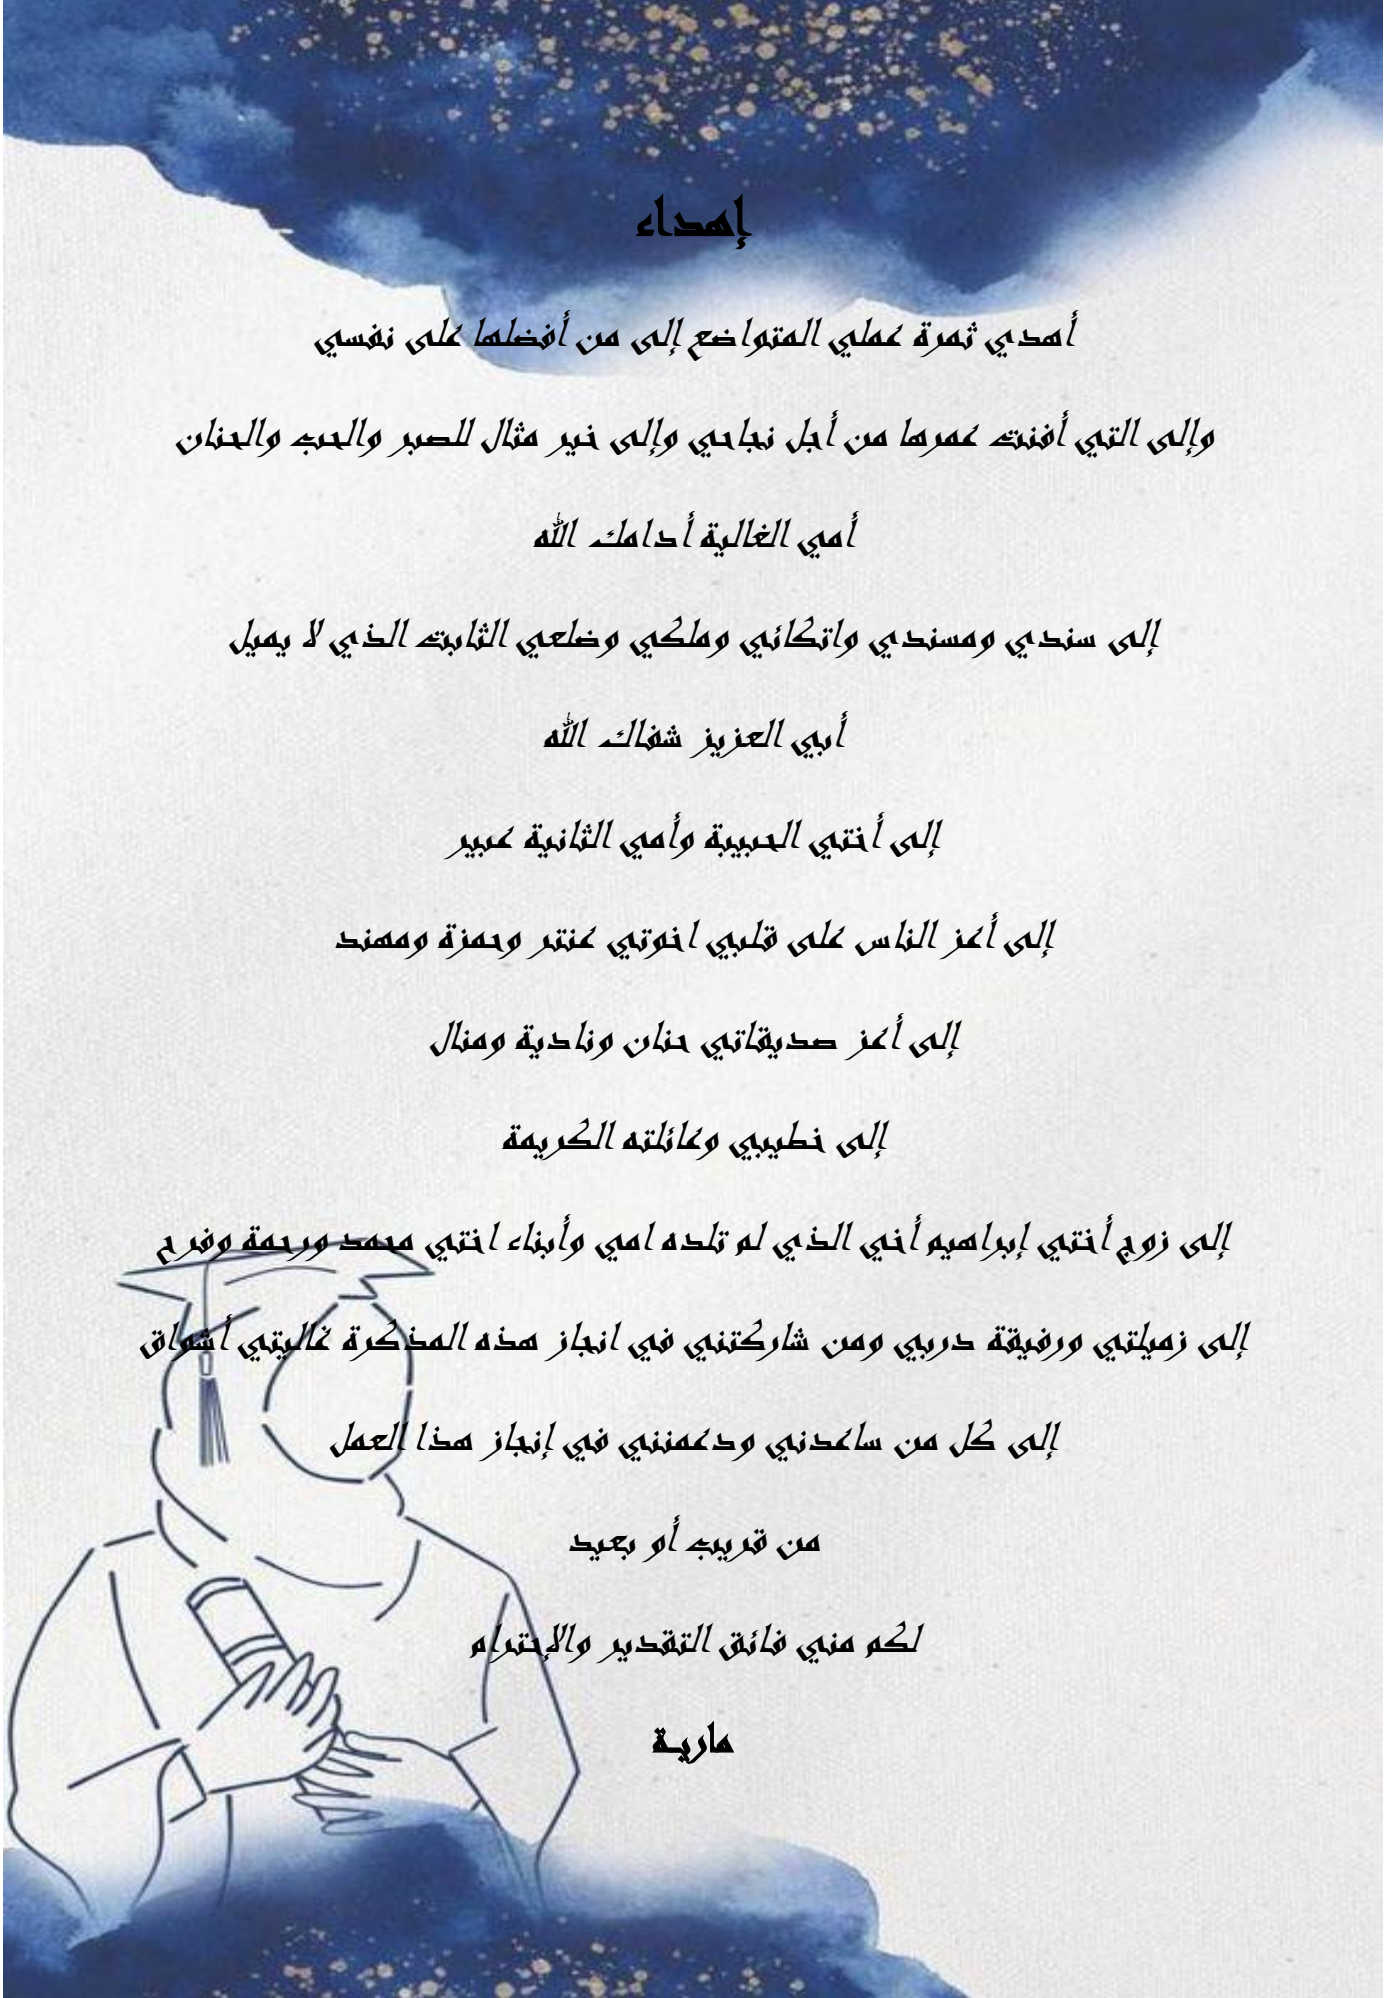 إهداء
أهدي ثمرة عملي المتواضع إلى من أفضلها على نفسي
وإلى التي أفنت عمرها من أجل نجاحي وإلى خير مثال للصبر والحب والحنان
أمي الغالية أدامك الله
إلى سندي ومسندي واتكائي وملكي وضلعي الثابت الذي لا يميل
أبي العزيز شفاك الله
إلى أختي الحبيبة وأمي الثانية عبير
إلى أعز الناس على قلبي اخوتي عنتر وحمزة ومهند
إلى أعز صديقاتي حنان ونادية ومنال
إلى خطيبي وعائلته الكريمة
إلى زوج أختي إبراهيم أخي الذي لم تلده امي وأبناء اختي محمد ورحمة وفرح
إلى زميلتي ورفيقة دربي ومن شاركتنني في انجاز هذه المذكرة غاليتي أشواق
إلى كل من ساعدني ودعمنني في إنجاز هذا العمل
من قريب أو بعيد
لكم مني فائق التقدير والإحترام
مارية